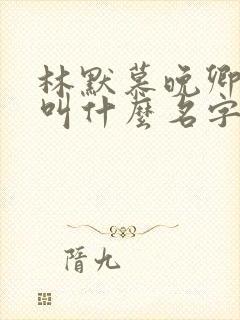 林默慕晚卿
叫什麼名字
隋九